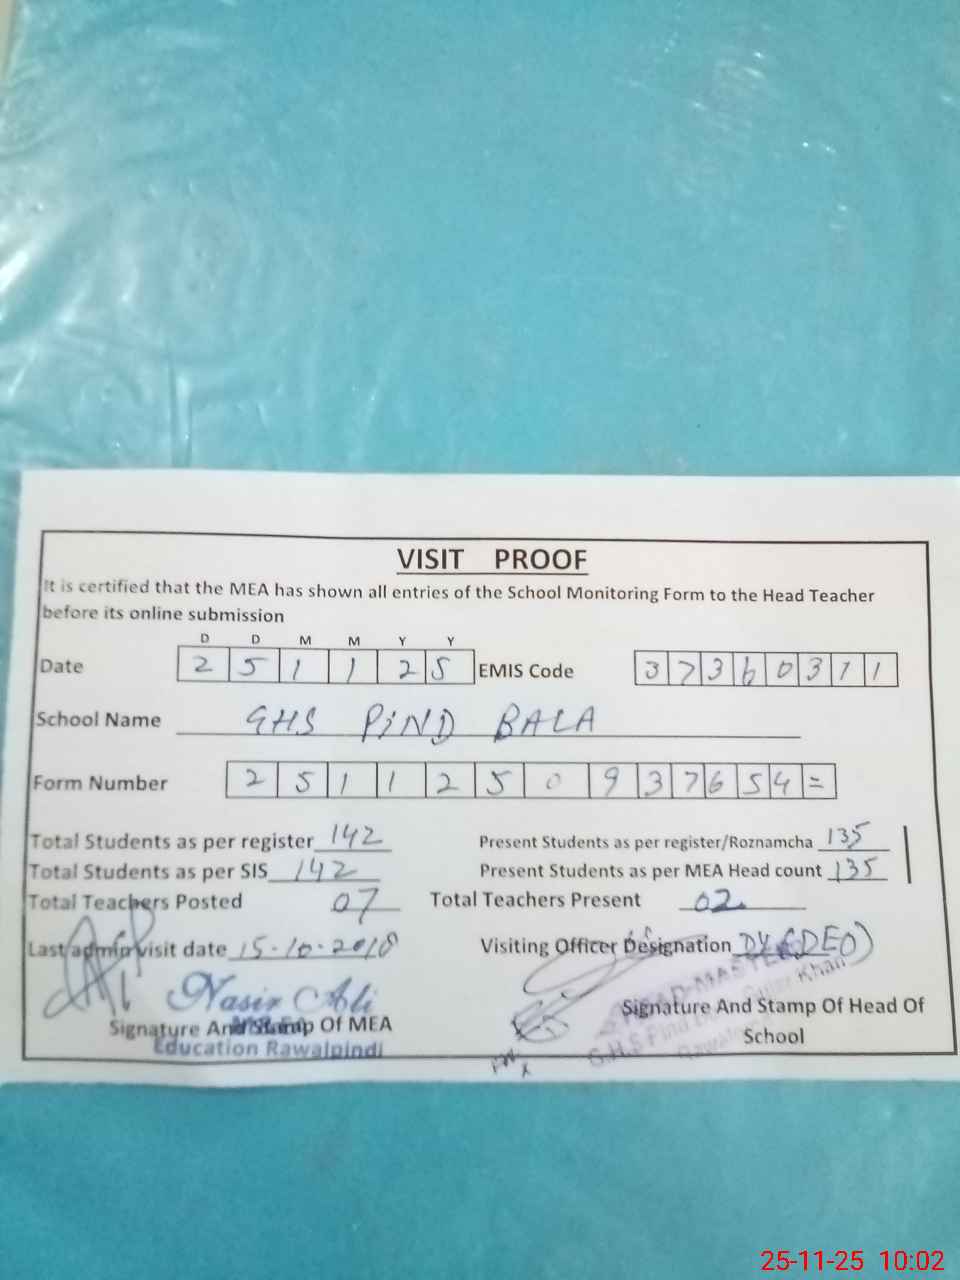 VISIT PROOF
It is certified that the MEA has shown all entries of the School Monitoring Form to the Head Teacher
before its online submission
D D M M Y Y
Date 2 5 1 1 2 5 EMIS Code 3 7 3 6 0 3 1 1
School Name GHS PIND BALA
Form Number 2 5 1 1 2 5 0 9 3 7 6 5 4 =
Total Students as per register 142 Present Students as per register/Roznamcha 135
Total Students as per SIS 142 Present Students as per MEA Head count 135
Total Teachers Posted 07 Total Teachers Present 02
Last admin visit date 15-10-2018 Visiting Officer Designation DY(DEO)
Nasir Ali
Signature And Stamp Of MEA Signature And Stamp Of Head Of
School
Education Rawalpindi
HEAD-MASTER
G.H.S Pind Khan
25-11-25 10:02